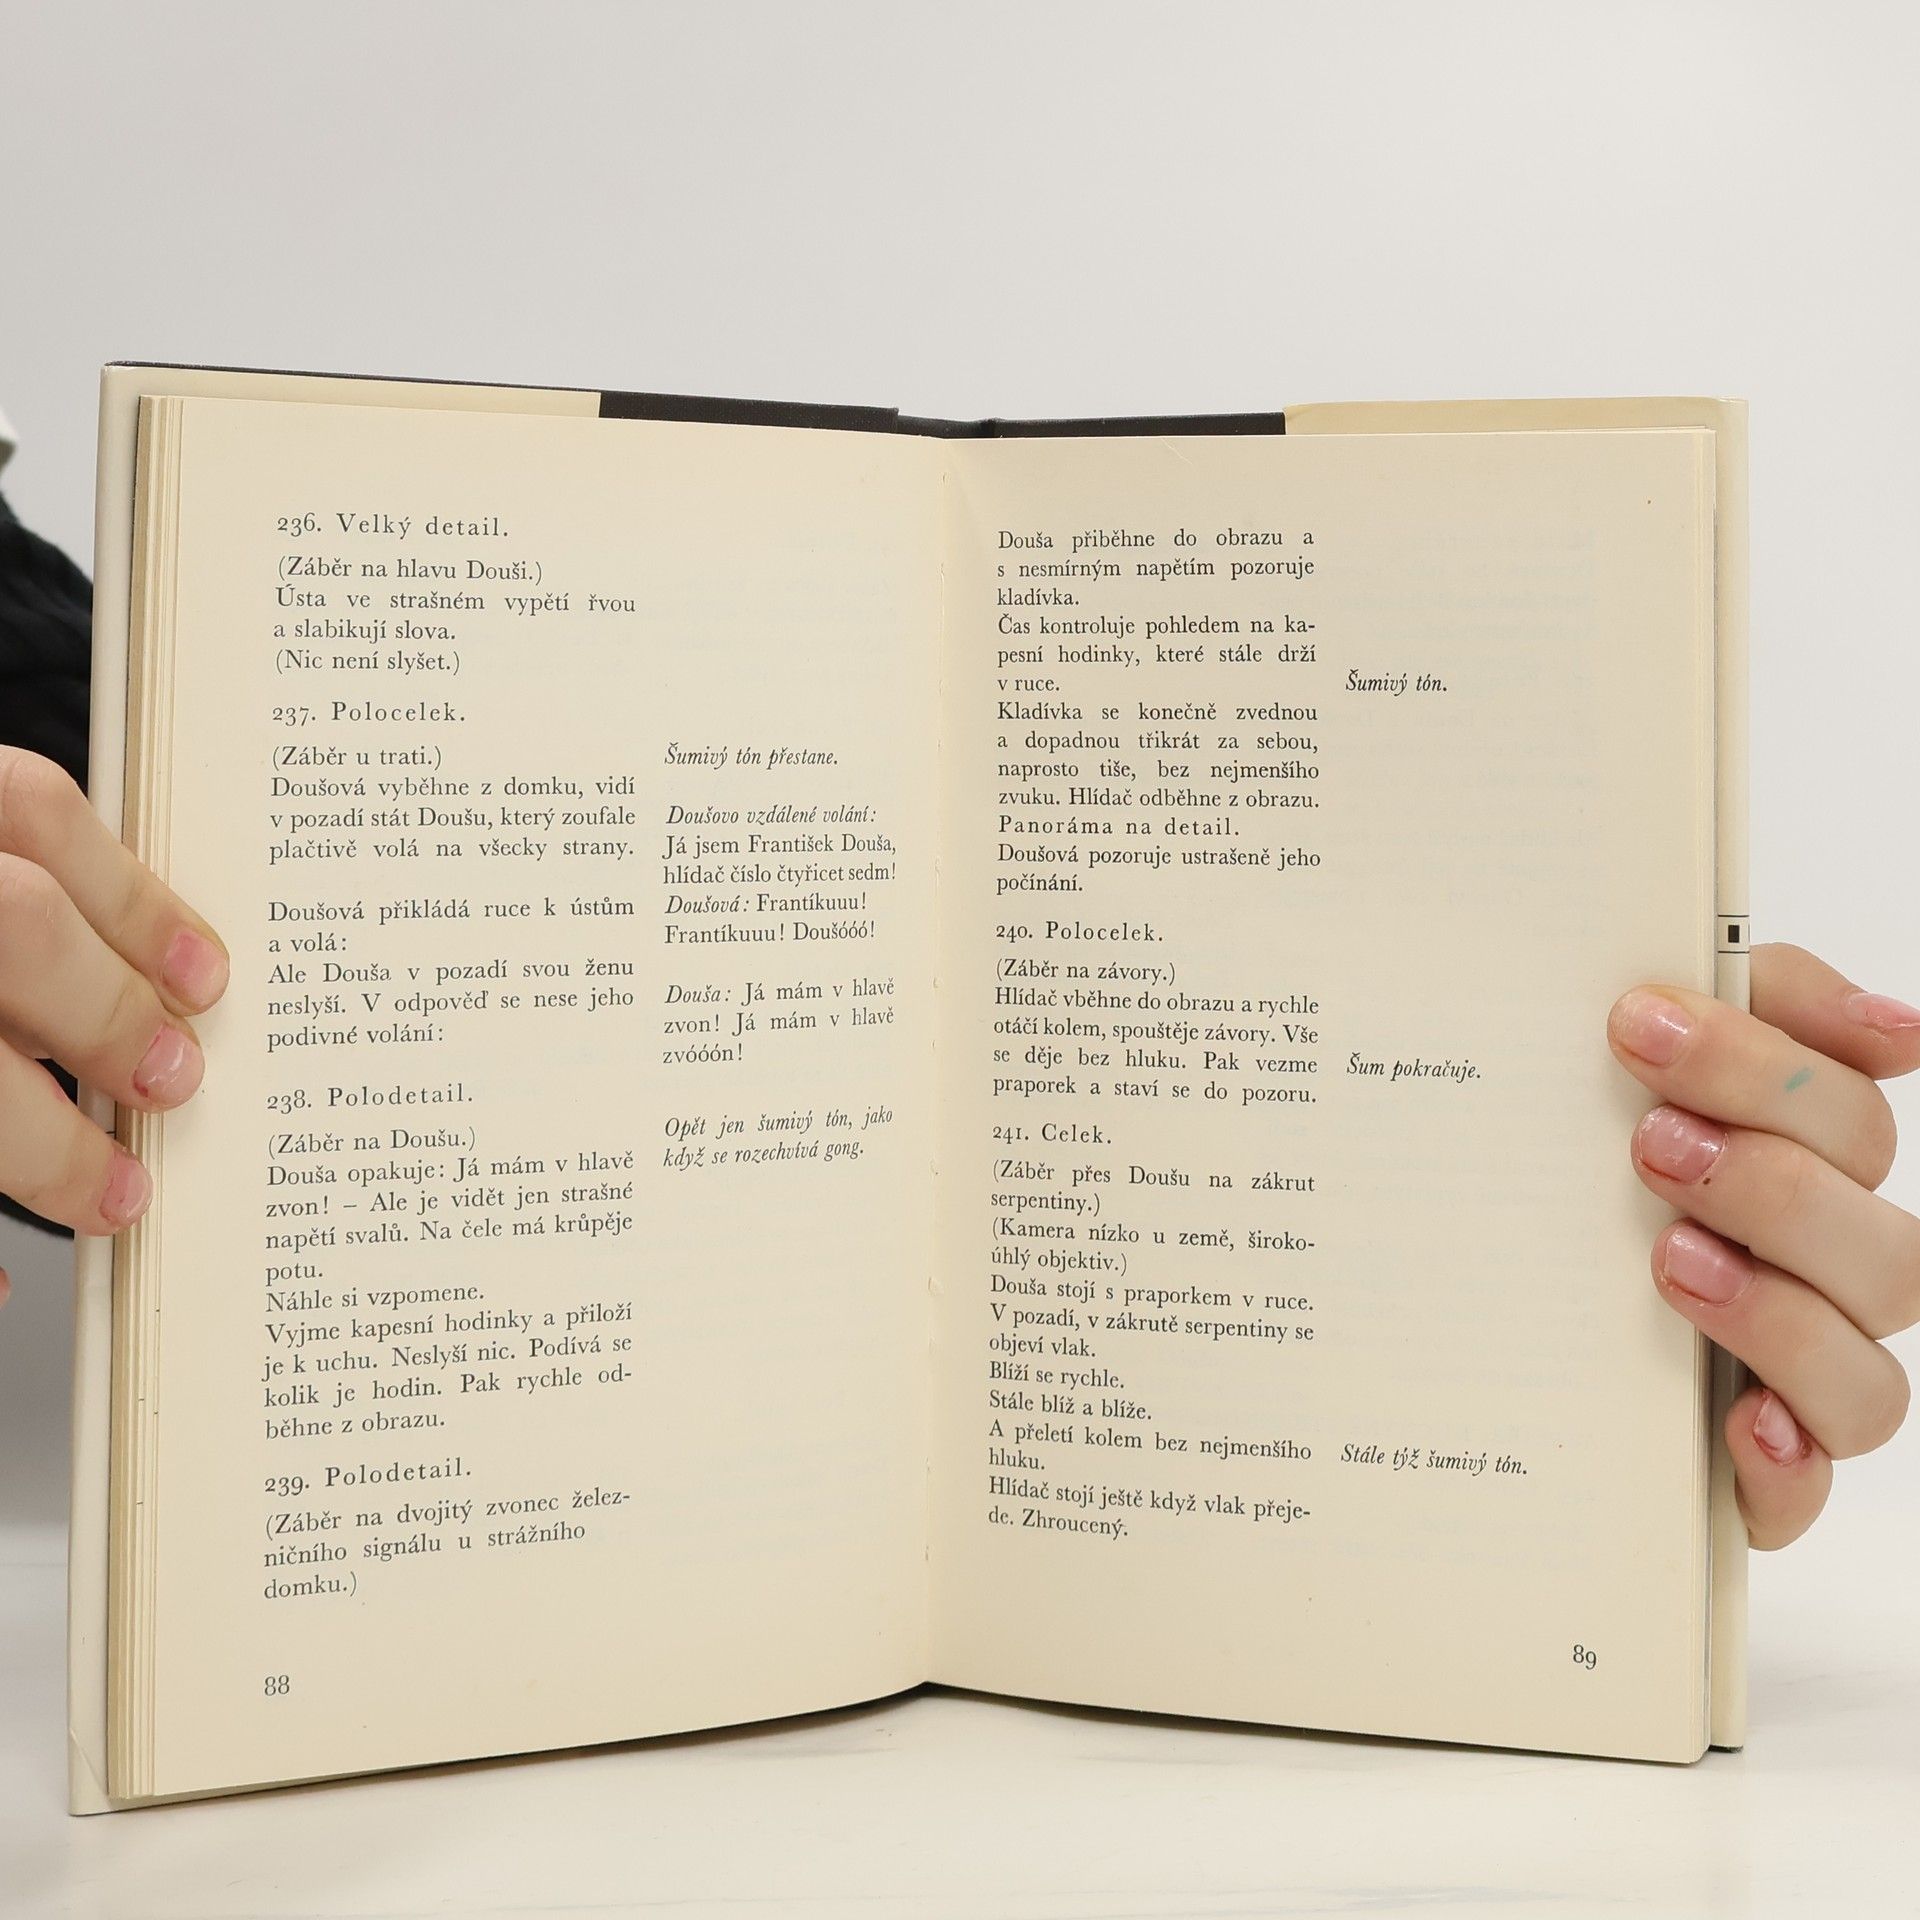 236. Velký detail.
(Záběr na hlavu Douši.)
Ústa ve strašném vypětí řvou
a slabikují slova.
(Nic není slyšet.)
237. Polocelek.
(Záběr u trati.)
Doušová vyběhne z domku, vidí
v pozadí stát Doušu, který zoufale
plačtivě volá na všecky strany.
Doušová přikládá ruce k ústům
a volá:
Ale Douša v pozadí svou ženu
neslyší. V odpověď se nese jeho
podivné volání:
Šumivý tón přestane.
Doušovo vzdálené volání:
Já jsem František Douša,
hlídač číslo čtyřicet sedm!
Doušová: Frantíkuuu!
Frantíkuuu! Doušóóó!
Douša: Já mám v hlavě
zvon! Já mám v hlavě
zvóóón!
238. Polodetail.
(Záběr na Doušu.)
Douša opakuje: Já mám v hlavě
zvon! – Ale je vidět jen strašné
napětí svalů. Na čele má krůpěje
potu.
Náhle si vzpomene.
Vyjme kapesní hodinky a přiloží
je k uchu. Neslyší nic. Podívá se
kolik je hodin. Pak rychle od-
běhne z obrazu.
Opět jen šumivý tón, jako
když se rozechvívá gong.
239. Polodetail.
(Záběr na dvojitý zvonec želez-
ničního signálu u strážního
domku.)
88
Douša přiběhne do obrazu a
s nesmírným napětím pozoruje
kladívka.
Čas kontroluje pohledem na ka-
pesní hodinky, které stále drží
v ruce.
Šumivý tón.
Kladívka se konečně zvednou
a dopadnou třikrát za sebou,
naprosto tiše, bez nejmenšího
zvuku. Hlídač odběhne z obrazu.
Panoráma na detail.
Doušová pozoruje ustrašeně jeho
počínání.
240. Polocelek.
(Záběr na závory.)
Hlídač vběhne do obrazu a rychle
otáčí kolem, spouštěje závory. Vše
se děje bez hluku. Pak vezme
praporek a staví se do pozoru.
Šum pokračuje.
241. Celek.
(Záběr přes Doušu na zákrut
serpentiny.)
(Kamera nízko u země, široko-
úhlý objektiv.)
Douša stojí s praporkem v ruce.
V pozadí, v zákrutě serpentiny se
objeví vlak.
Blíží se rychle.
Stále blíž a blíže.
A přeletí kolem bez nejmenšího
hluku.
Stále týž šumivý tón.
Hlídač stojí ještě když vlak přeje-
de. Zhroucený.
89